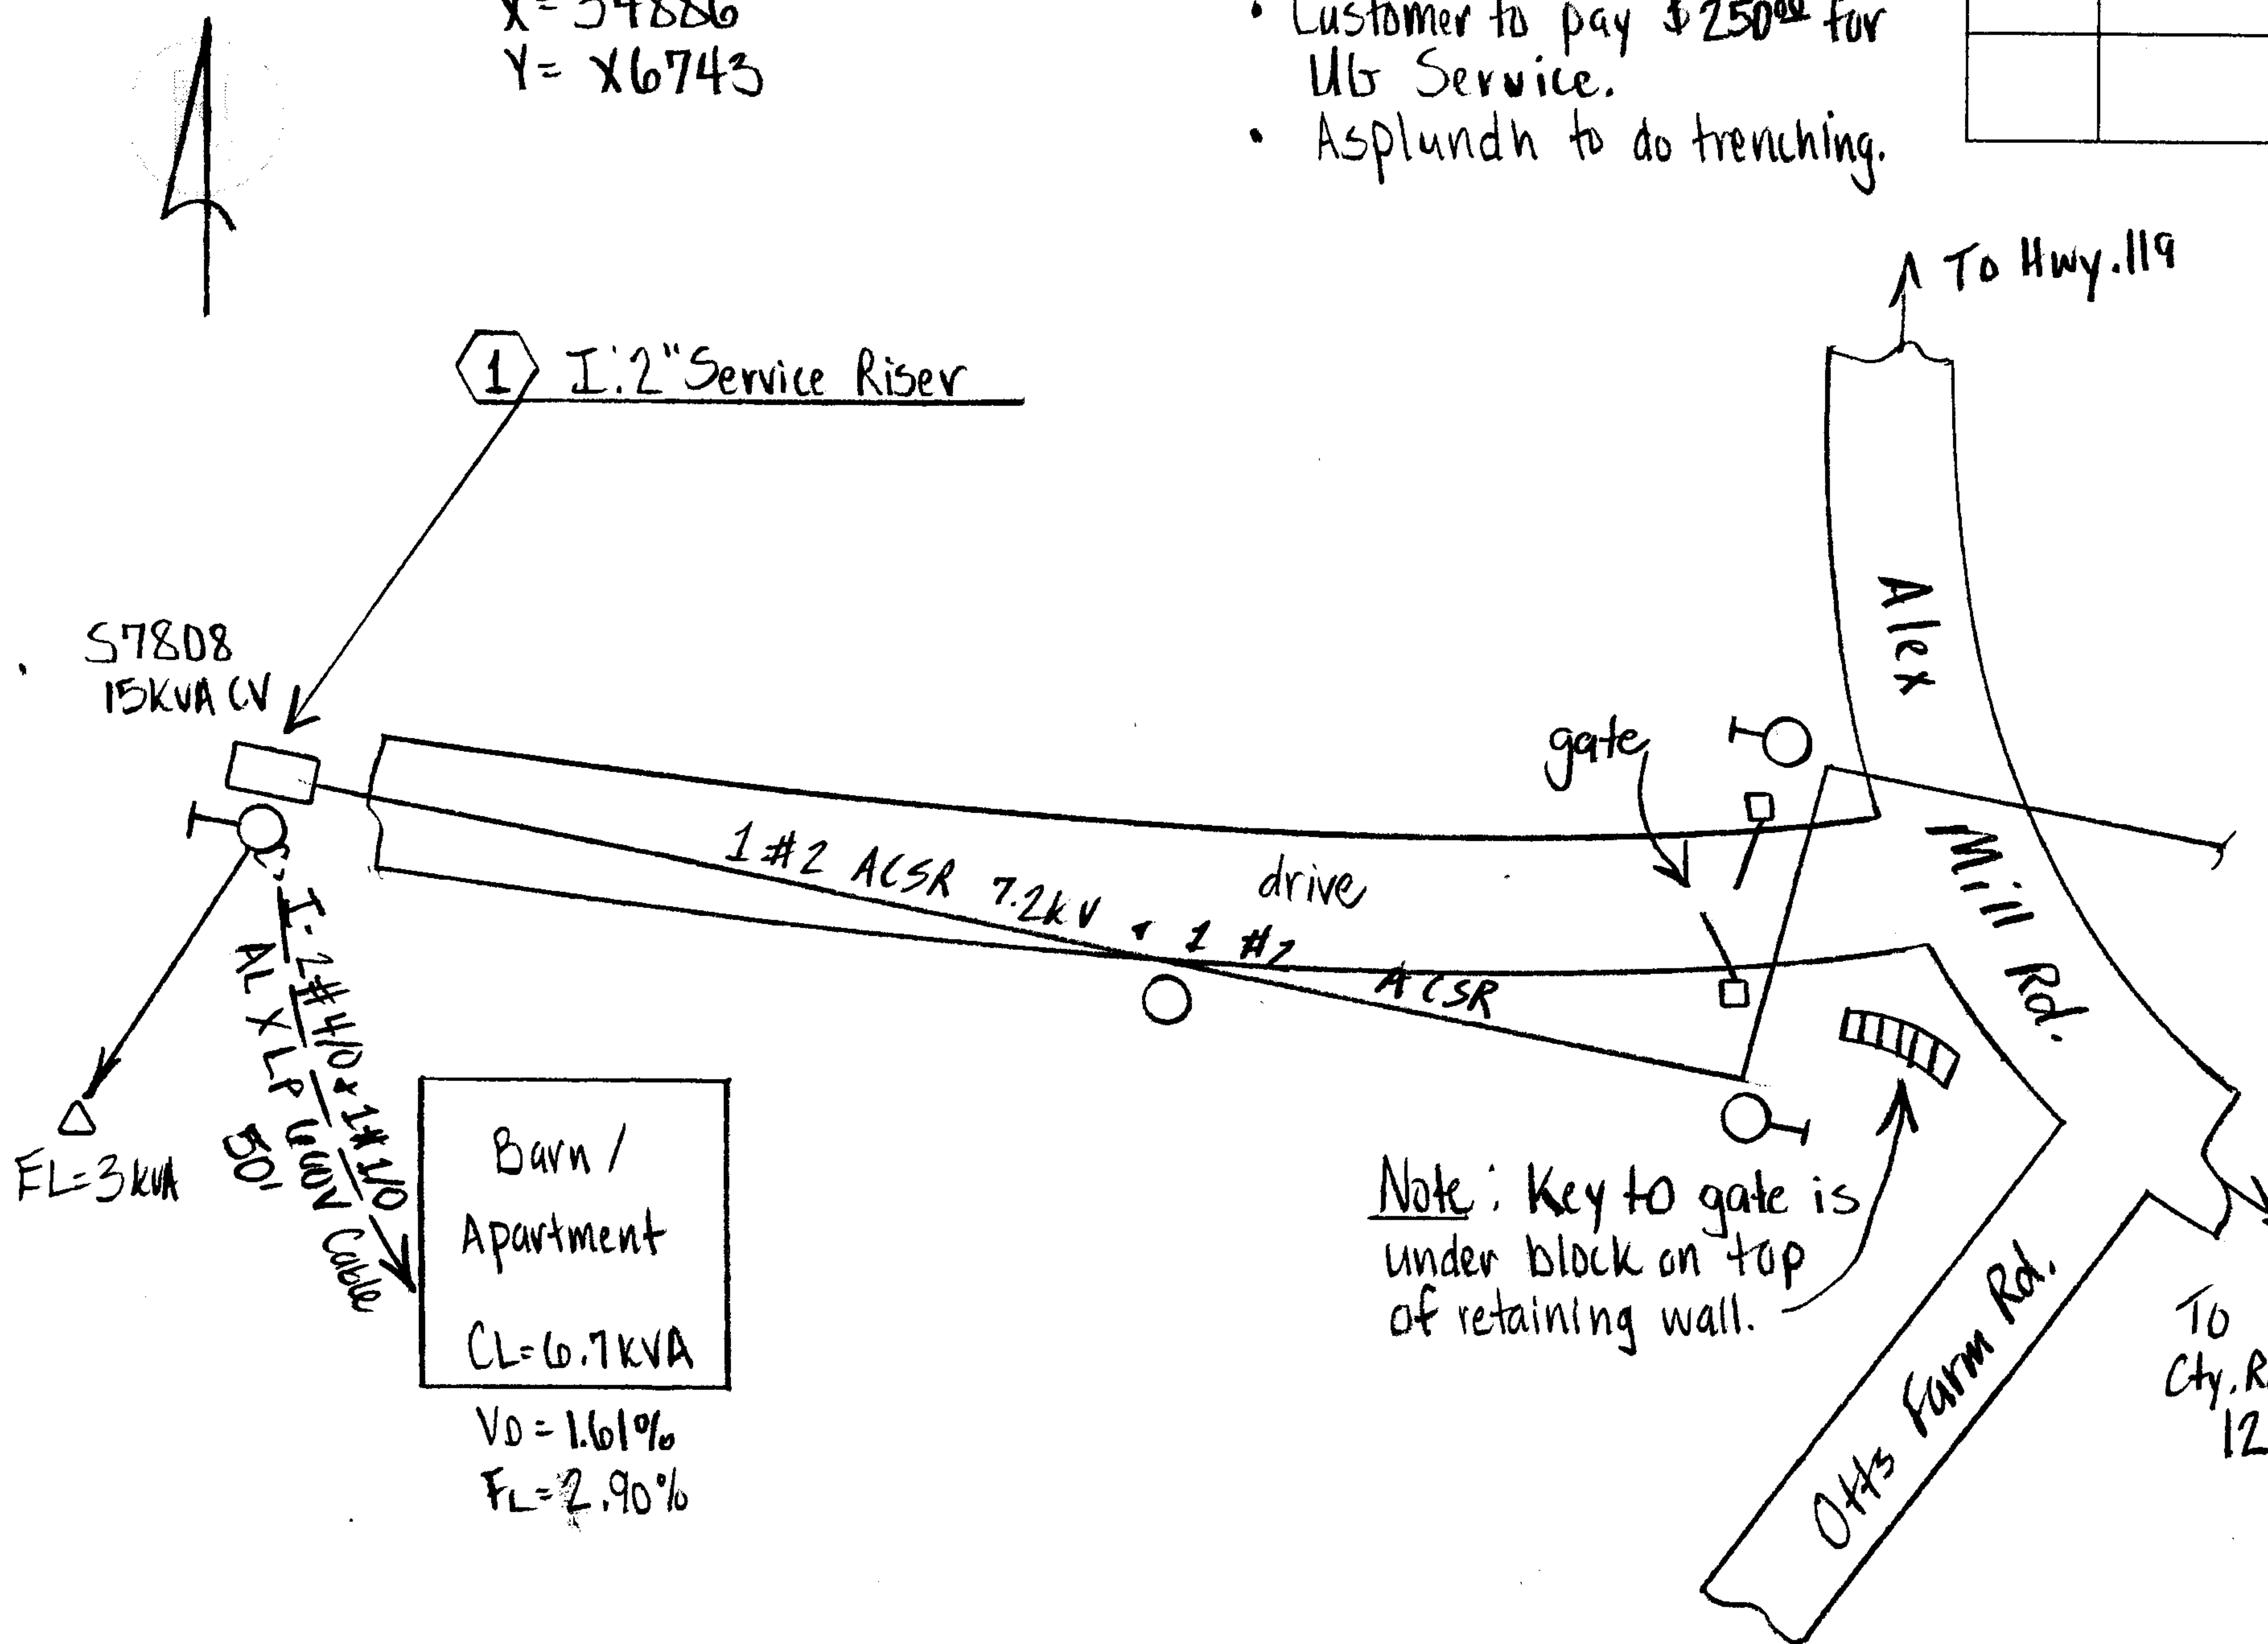 X= 54886
Y= X6743
• Customer to pay $250.00 for
UG Service.
• Asplundh to do trenching.
To Hwy. 119
1 I: 2" Service Riser
Alex
Mill Rd.
S7808
15KVA CV
gate
1 #2 ACSR 7.2kV • 1 #2 ACSR
drive
I- 2#4/0 & 1#1/0
AL X LP UWV Cable
50'
FL=3 kVA
Barn /
Apartment
CL=6.7KVA
VD = 1.61%
FL=2.90%
Note: Key to gate is
under block on top
of retaining wall.
Otts Farm Rd.
To
Cty. R
12